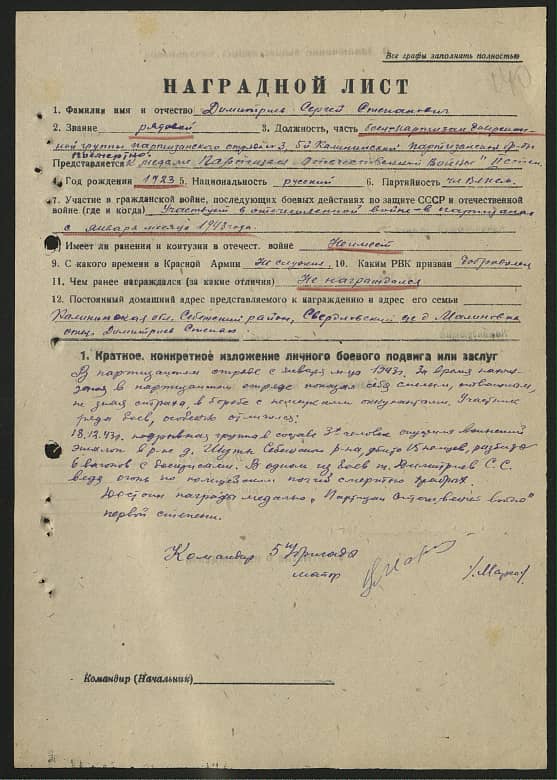 Все графы заполнять полностью
НАГРАДНОЙ ЛИСТ
1. Фамилия имя и отчество Димитриев Сергей Степанович
2. Звание рядовой 3. Должность, часть боец-партизан
ной группы партизанского отряда №3, 5й Калининской партизанской бр-ды
посмертно
Представляется к медали „Партизан Отечественной Войны" I степ.
4. Год рождения 1923 5. Национальность русский 6. Партийность чл. ВЛКСМ.
7. Участие в гражданской войне, последующих боевых действиях по защите СССР и отечественной
войне (где и когда) Участвует в отечественной войне - в партизанах
с января месяца 1943 года.
8. Имеет ли ранения и контузии в отечест. войне Не имеет
9. С какого времени в Красной Армии Не служил 10. Каким РВК призван доброволец
11. Чем ранее награждался (за какие отличия) Не награждался
12. Постоянный домашний адрес представляемого к награждению и адрес его семьи
Калининская обл. Себежский район, Свердловский с/с д. Малиновка
отец. Димитриев Степан
1. Краткое, конкретное изложение личного боевого подвига или заслуг
В партизанском отряде с января м-ца 1943г. За время нахож-
дения в партизанском отряде показал себя смелым, отважным,
не зная страха в борьбе с немецкими оккупантами. Участник
ряда боев, особенно отличился:
18.12.43г. подрывная группа в составе 3х человек спустила воинский
эшелон в р-не д. Себежского р-на, убито 15 немцев, разбито
6 вагонов с боеприпасами. В одном из боев т. Димитриев С.С.
ведя огонь по полицейским погиб смертью храбрых.
Достоин награды медалью „Партизан Отечественной войны"
первой степени.
Командир 5й бригады
майор /Марго/
Командир (Начальник)